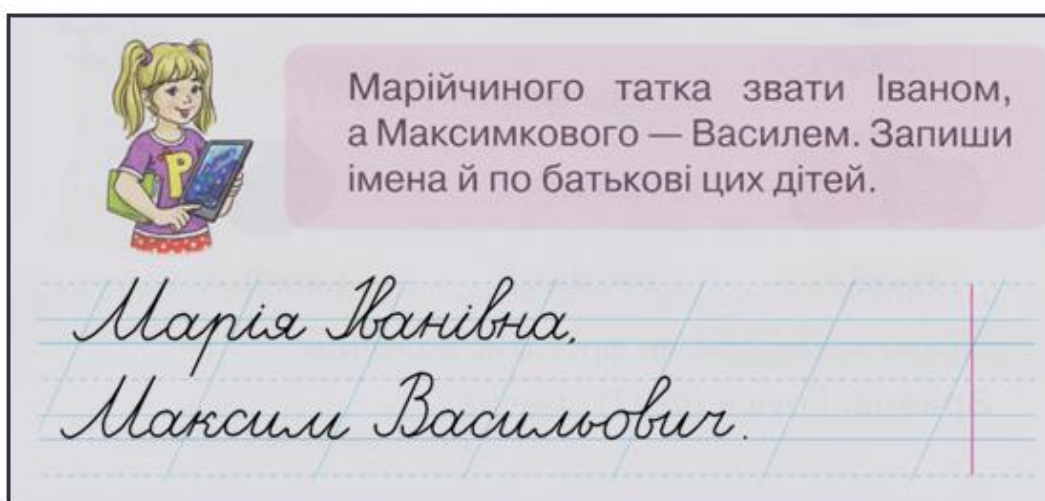 Марійчиного татка звати Іваном,
а Максимкового — Василем. Запиши
імена й по батькові цих дітей.
Р
Марія Іванівна,
Максим Васильович.